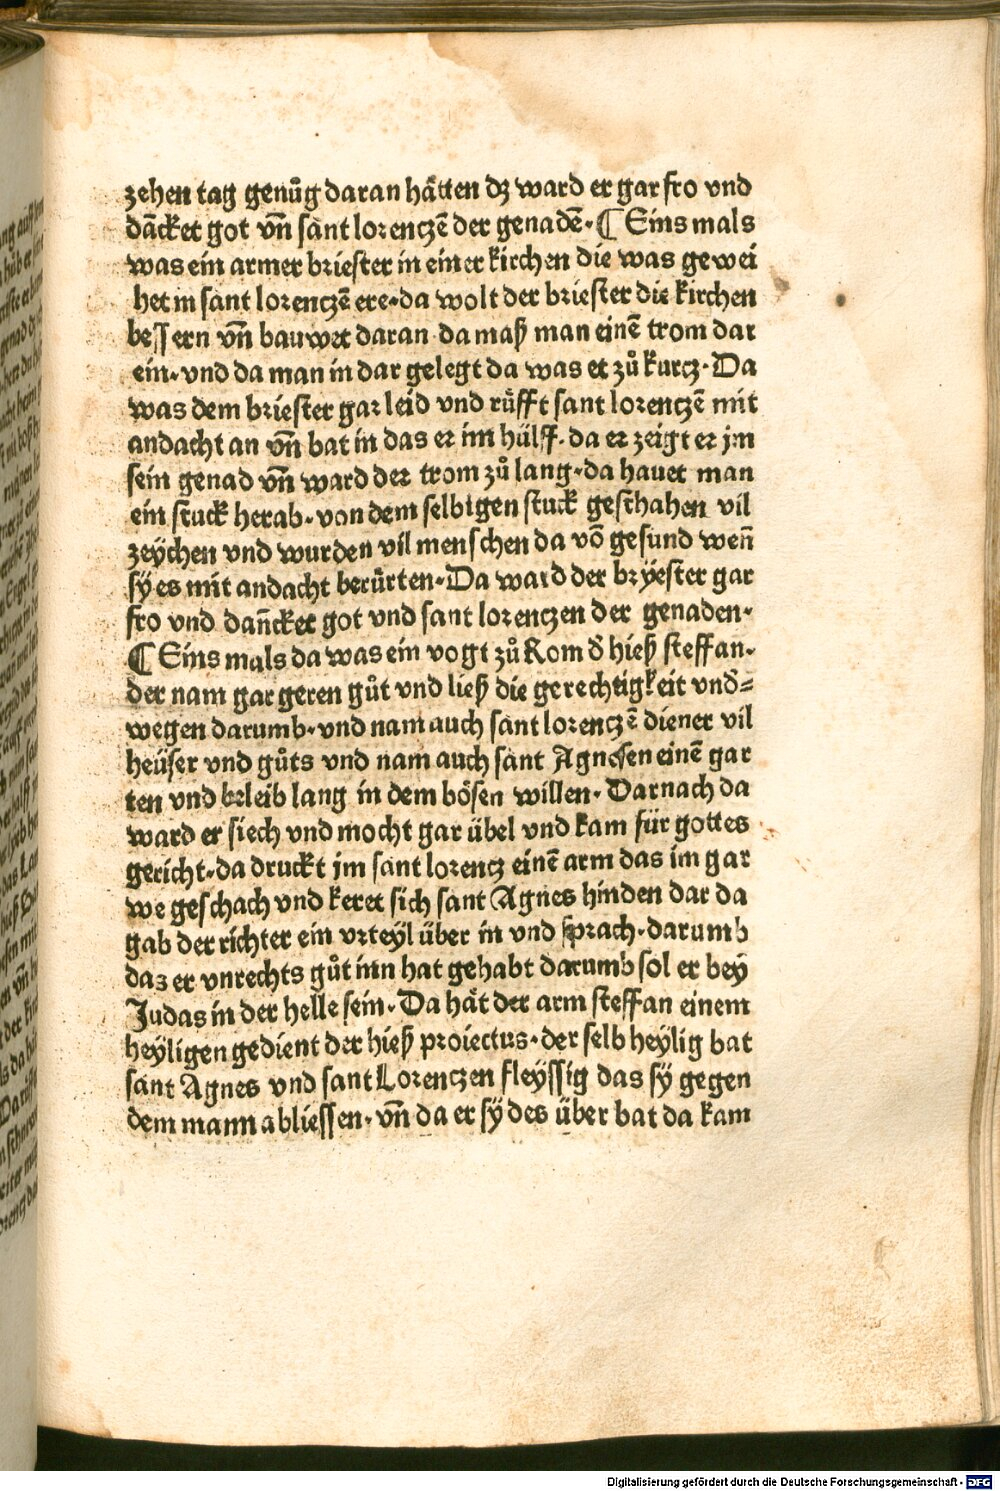 zehen tag genůg daran hätten dz ward er gar fro vnd
dācket got vn̄ sant lorenczē der genadē· ¶ Eins mals
was ein armer briester in einer kirchen die was gewei
het in sant lorenczē ere·da wolt der briester die kirchen
bessern vn̄ bauwet daran·da maß man einē trom dar
ein·vnd da man in dar gelegt da was et zů kurcz·Da
was dem briester gar leid vnd růfft sant lorenczē mit
andacht an vn̄ bat in das er im hülff·da erzeigt er jm
sein genad vn̄ ward der trom zů lang·da hauet man
ein stuck herab·von dem selbigen stuck geschahen vil
zeychen vnd wurden vil menschen da vō gesund wen̄
sÿ es mit andacht berürten·Da ward der brÿester gar
fro vnd dan̄cket got vnd sant lorenczen der genaden·
¶ Eins mals da was ein vogt zů Rom d̄ hieß steffan·
der nam gar geren gůt vnd ließ die gerechtigkeit vnd̄=
wegen darumb·vnd nam auch sant lorenczē diener vil
heüser vnd gůts vnd nam auch sant Agnesen einē gar
ten vnd beleib lang in dem bösen willen·Darnach da
ward er siech vnd mocht gar übel vnd kam für gottes
gericht·da druckt jm sant lorencz einē arm das im gar
we geschach vnd keret sich sant Agnes hinden dar da
gab der richter ein vrteyl über in vnd sprach·darumb
daz er vnrechts gůt inn hat gehabt darumb sol er beÿ
Judas in der helle sein·Da hät der arm steffan einem
heÿligen gedient der hieß proiectus·der selb heÿlig bat
sant Agnes vnd sant Lorenczen fleÿssig das sÿ gegen
dem mann abliessen·vn̄ da er sÿ des über bat da kam
Digitalisierung gefördert durch die Deutsche Forschungsgemeinschaft - DFG